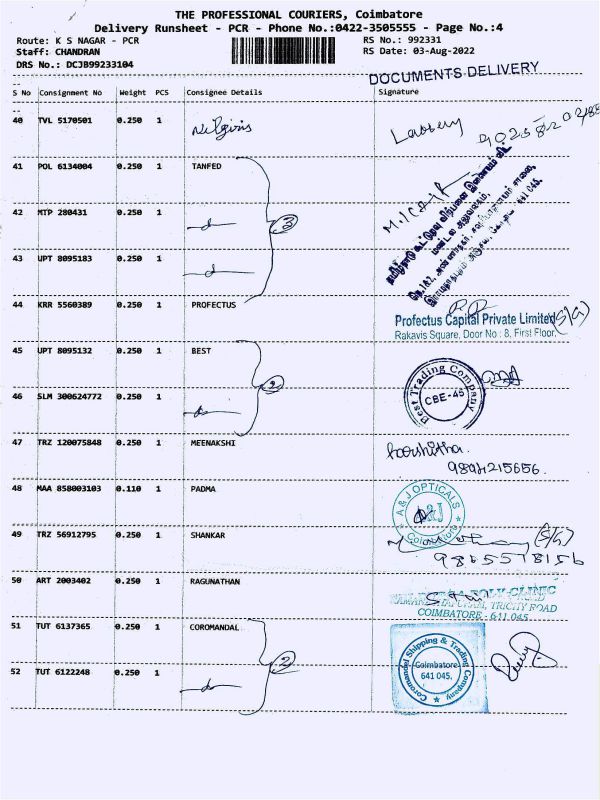 THE PROFESSIONAL COURIERS, Coimbatore
Delivery Runsheet - PCR - Phone No.:0422-3505555 - Page No.:4
Route: K S NAGAR - PCR
RS No.: 992331
Staff: CHANDRAN
RS Date: 03-Aug-2022
DRS No.: DCJB99233104
DOCUMENTS DELIVERY
S No Consignment No Weight PCS Consignee Details Signature
40 TVL 5170501 0.250 1 Nilgiris
41 POL 6134004 0.250 1 TANFED
42 MTP 280431 0.250 1 do
3
43 UPT 8095183 0.250 1 do
44 KRR 5560389 0.250 1 PROFECTUS
Profectus Capital Private Limited (S/G)
Rakavis Square, Door No : 8, First Floor,
45 UPT 8095132 0.250 1 BEST
2
Best Trading Company
CBE-45
46 SLM 300624772 0.250 1 do
47 TRZ 120075848 0.250 1 MEENAKSHI
9894215656.
48 MAA 858003103 0.110 1 PADMA
A & J OPTICALS
A&J
Coimbatore
49 TRZ 56912795 0.250 1 SHANKAR (S/G)
9865578156
50 ART 2003402 0.250 1 RAGUNATHAN
POLY CLINIC
TRICHY ROAD
COIMBATORE - 641 045.
51 TUT 6137365 0.250 1 COROMANDAL
2
Coromandel Shipping & Trading Company
Coimbatore
641 045.
52 TUT 6122248 0.250 1 do